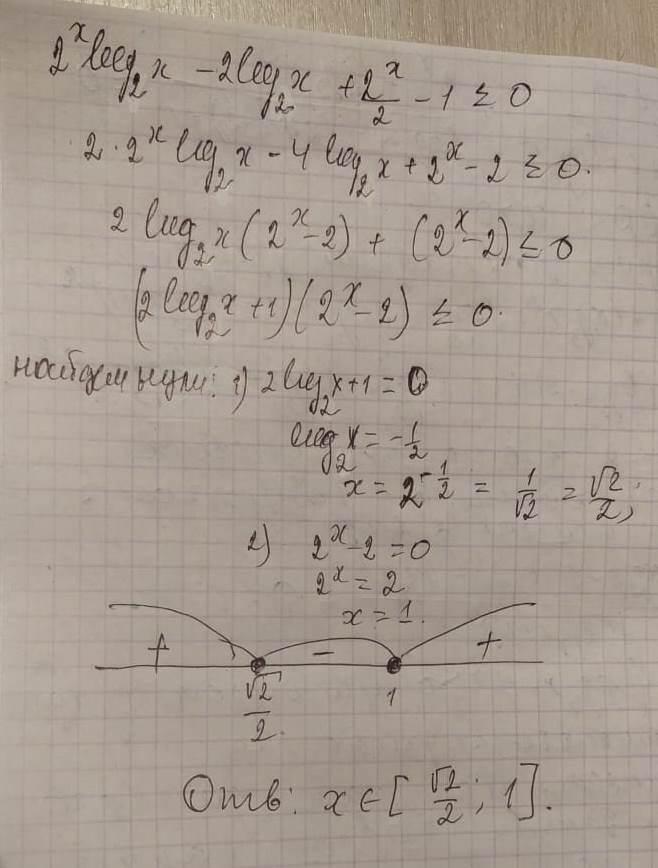 2^x log₂x - 2log₂x + 2^x/2 - 1 ≤ 0
2 · 2^x log₂x - 4 log₂x + 2^x - 2 ≤ 0.
2 log₂x (2^x - 2) + (2^x - 2) ≤ 0
(2log₂x + 1)(2^x - 2) ≤ 0.
найдем нули: 1) 2log₂x + 1 = 0
log₂x = -1/2
x = 2^(-1/2) = 1/√2 = √2/2;
2) 2^x - 2 = 0
2^x = 2
x = 1.
+ - +
√2/2. 1
Отв: x ∈ [√2/2; 1].